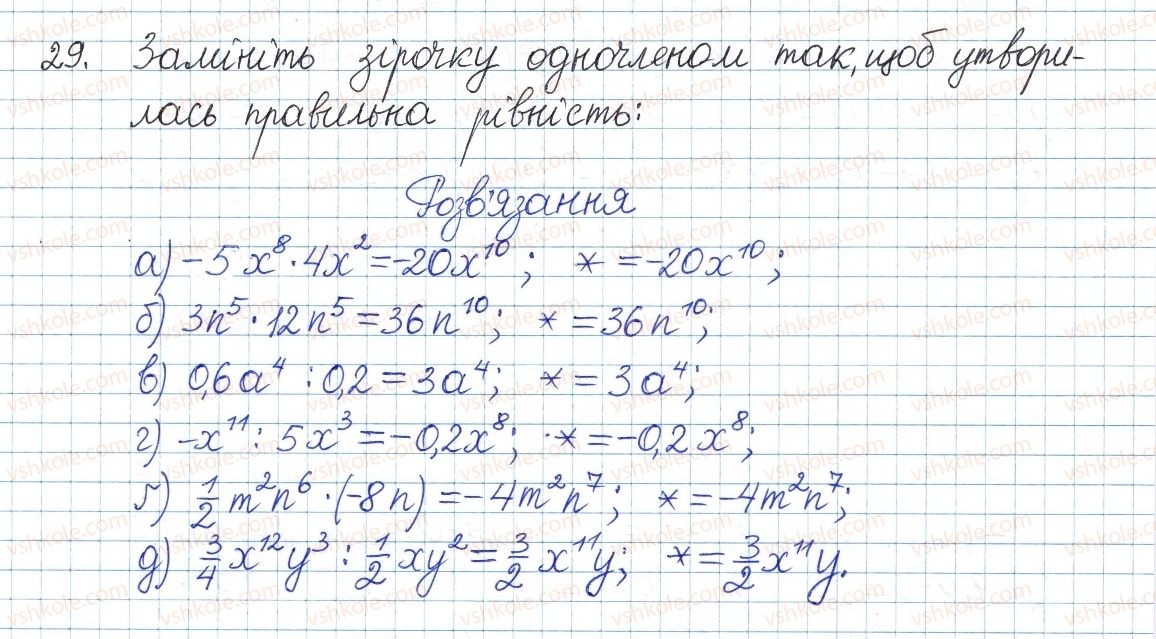 29. Замініть зірочку одночленом так, щоб утвори-
лась правильна рівність:
Розв'язання
а) -5x⁸ · 4x² = -20x¹⁰; * = -20x¹⁰;
б) 3n⁵ · 12n⁵ = 36n¹⁰; * = 36n¹⁰;
в) 0,6a⁴ : 0,2 = 3a⁴; * = 3a⁴;
г) -x¹¹ : 5x³ = -0,2x⁸; * = -0,2x⁸;
ґ) 1/2 m²n⁶ · (-8n) = -4m²n⁷; * = -4m²n⁷;
д) 3/4 x¹²y³ : 1/2 xy² = 3/2 x¹¹y; * = 3/2 x¹¹y.